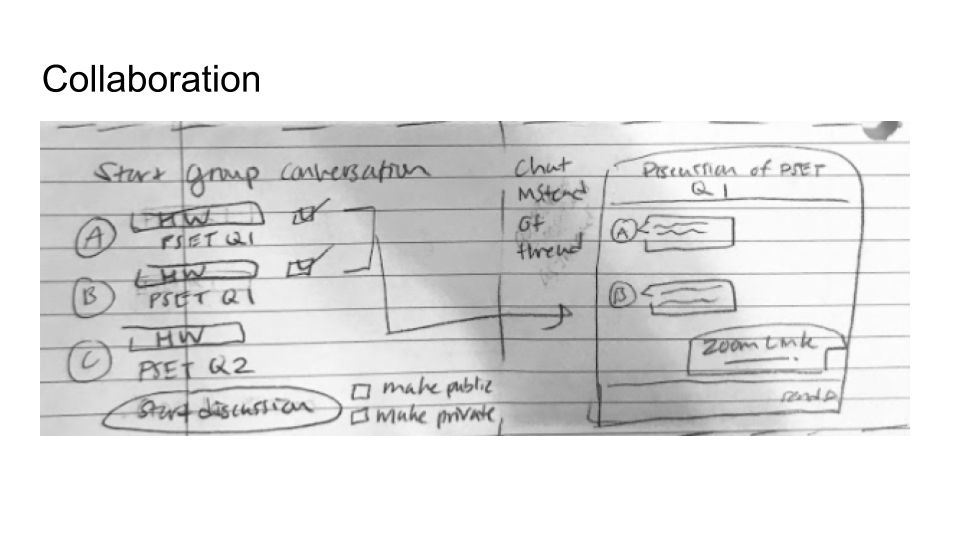 Collaboration
Start group conversation
A
HW
PSET Q1
B
HW
PSET Q1
C
HW
PSET Q2
Start discussion
make public
make private
Chat
Instead
of
thread
Discussion of PSET
Q1
A
B
Zoom Link
send